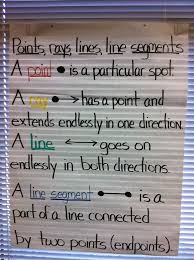 Points, rays, lines, line segments
A point is a particular spot.
A ray has a point and
extends endlessly in one direction.
A line goes on
endlessly in both directions.
A line segment is a
part of a line connected
by two points (endpoints).